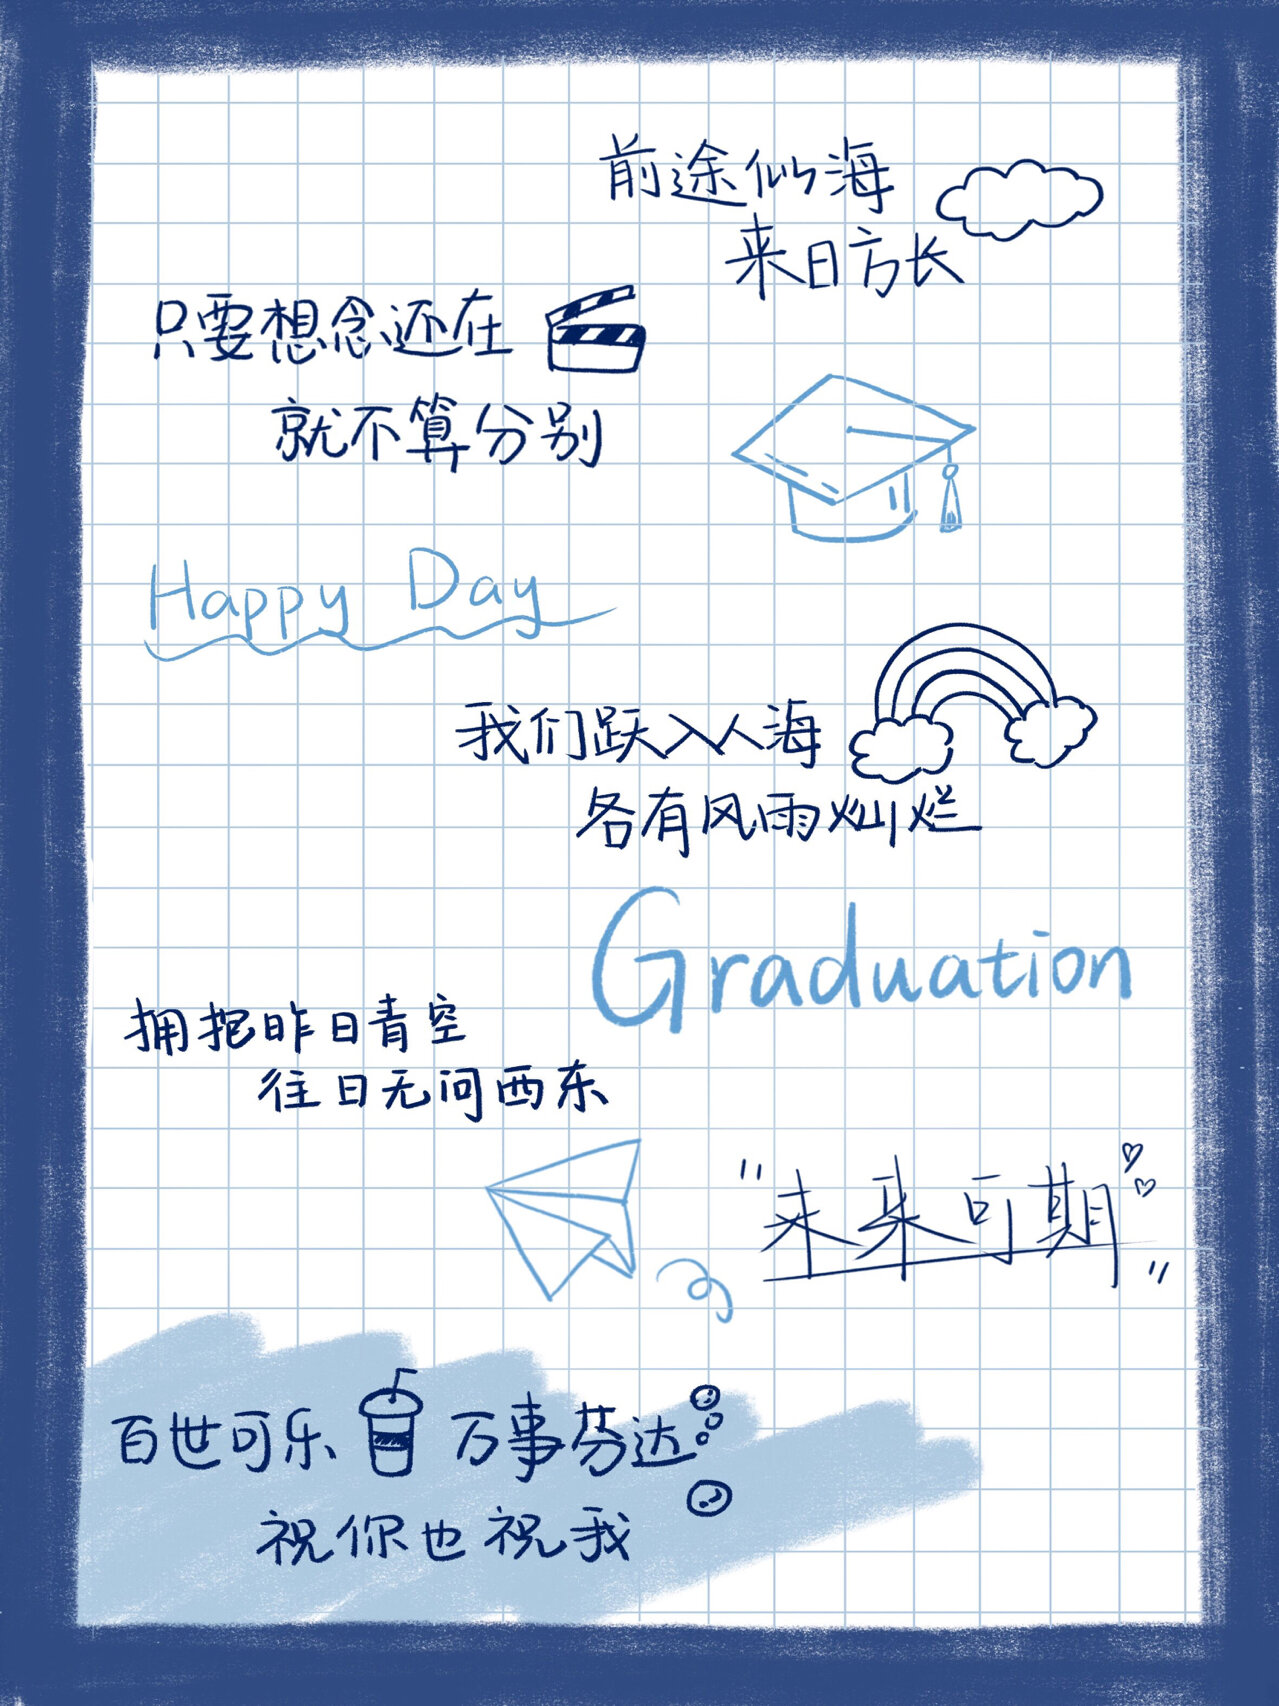 前途似海
来日方长
只要想念还在
就不算分别
Happy Day
我们跃入人海
各有风雨灿烂
Graduation
拥抱昨日青空
往日无问西东
"未来可期"
百世可乐 万事芬达
祝你也祝我